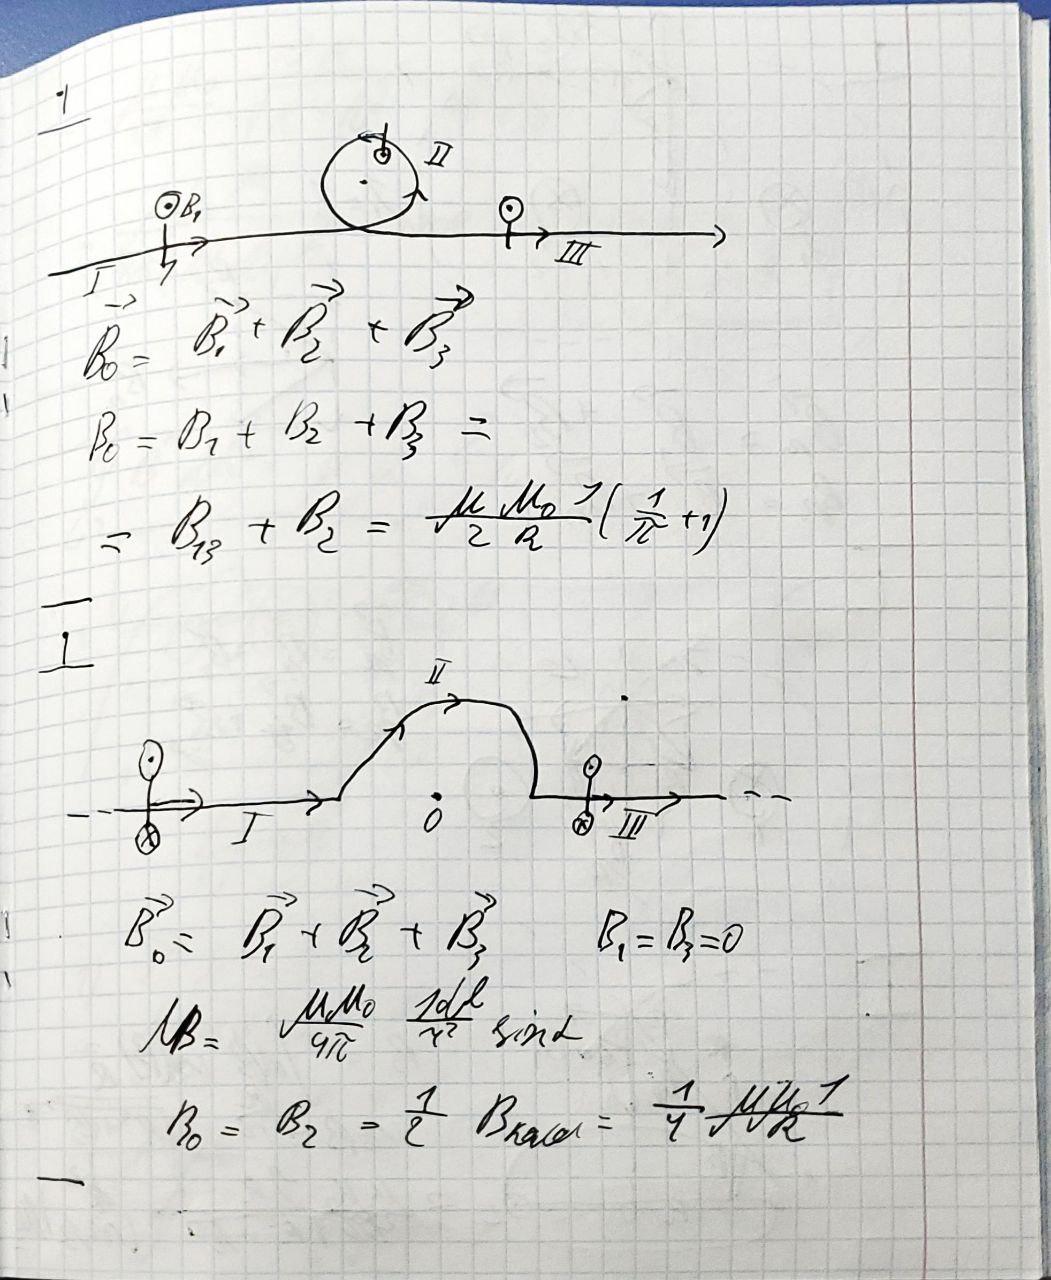 1
II
B₁
I
III
B⃗₀ = B⃗₁ + B⃗₂ + B⃗₃
B₀ = B₁ + B₂ + B₃ =
= B₁₃ + B₂ = μμ₀I/2R (1/π + 1)
1
II
I
O
III
B⃗₀ = B⃗₁ + B⃗₂ + B⃗₃ B₁ = B₃ = 0
dB = μμ₀/4π Idl/r² sinα
B₀ = B₂ = 1/2 Bкольц = 1/4 μμ₀I/R